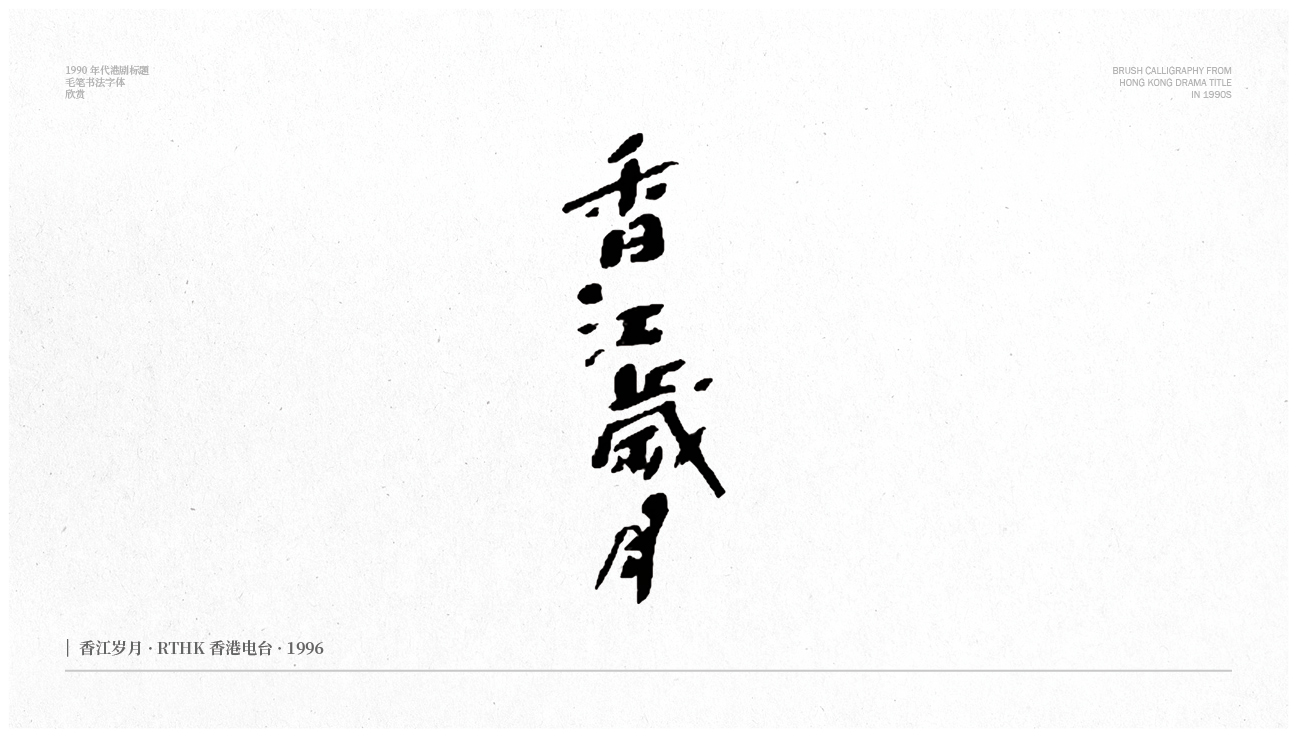 1990 年代港剧标题
毛笔书法字体
欣赏
BRUSH CALLIGRAPHY FROM
HONG KONG DRAMA TITLE
IN 1990S
香
江
歲
月
香江岁月 · RTHK 香港电台 · 1996